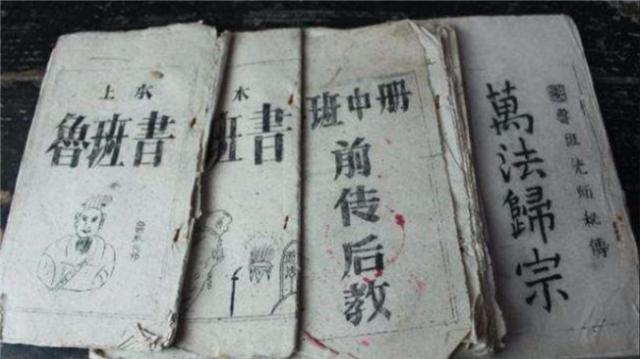 上本
魯班書
本
班書
班中册
前传后教
萬法歸宗
魯班先师秘傳